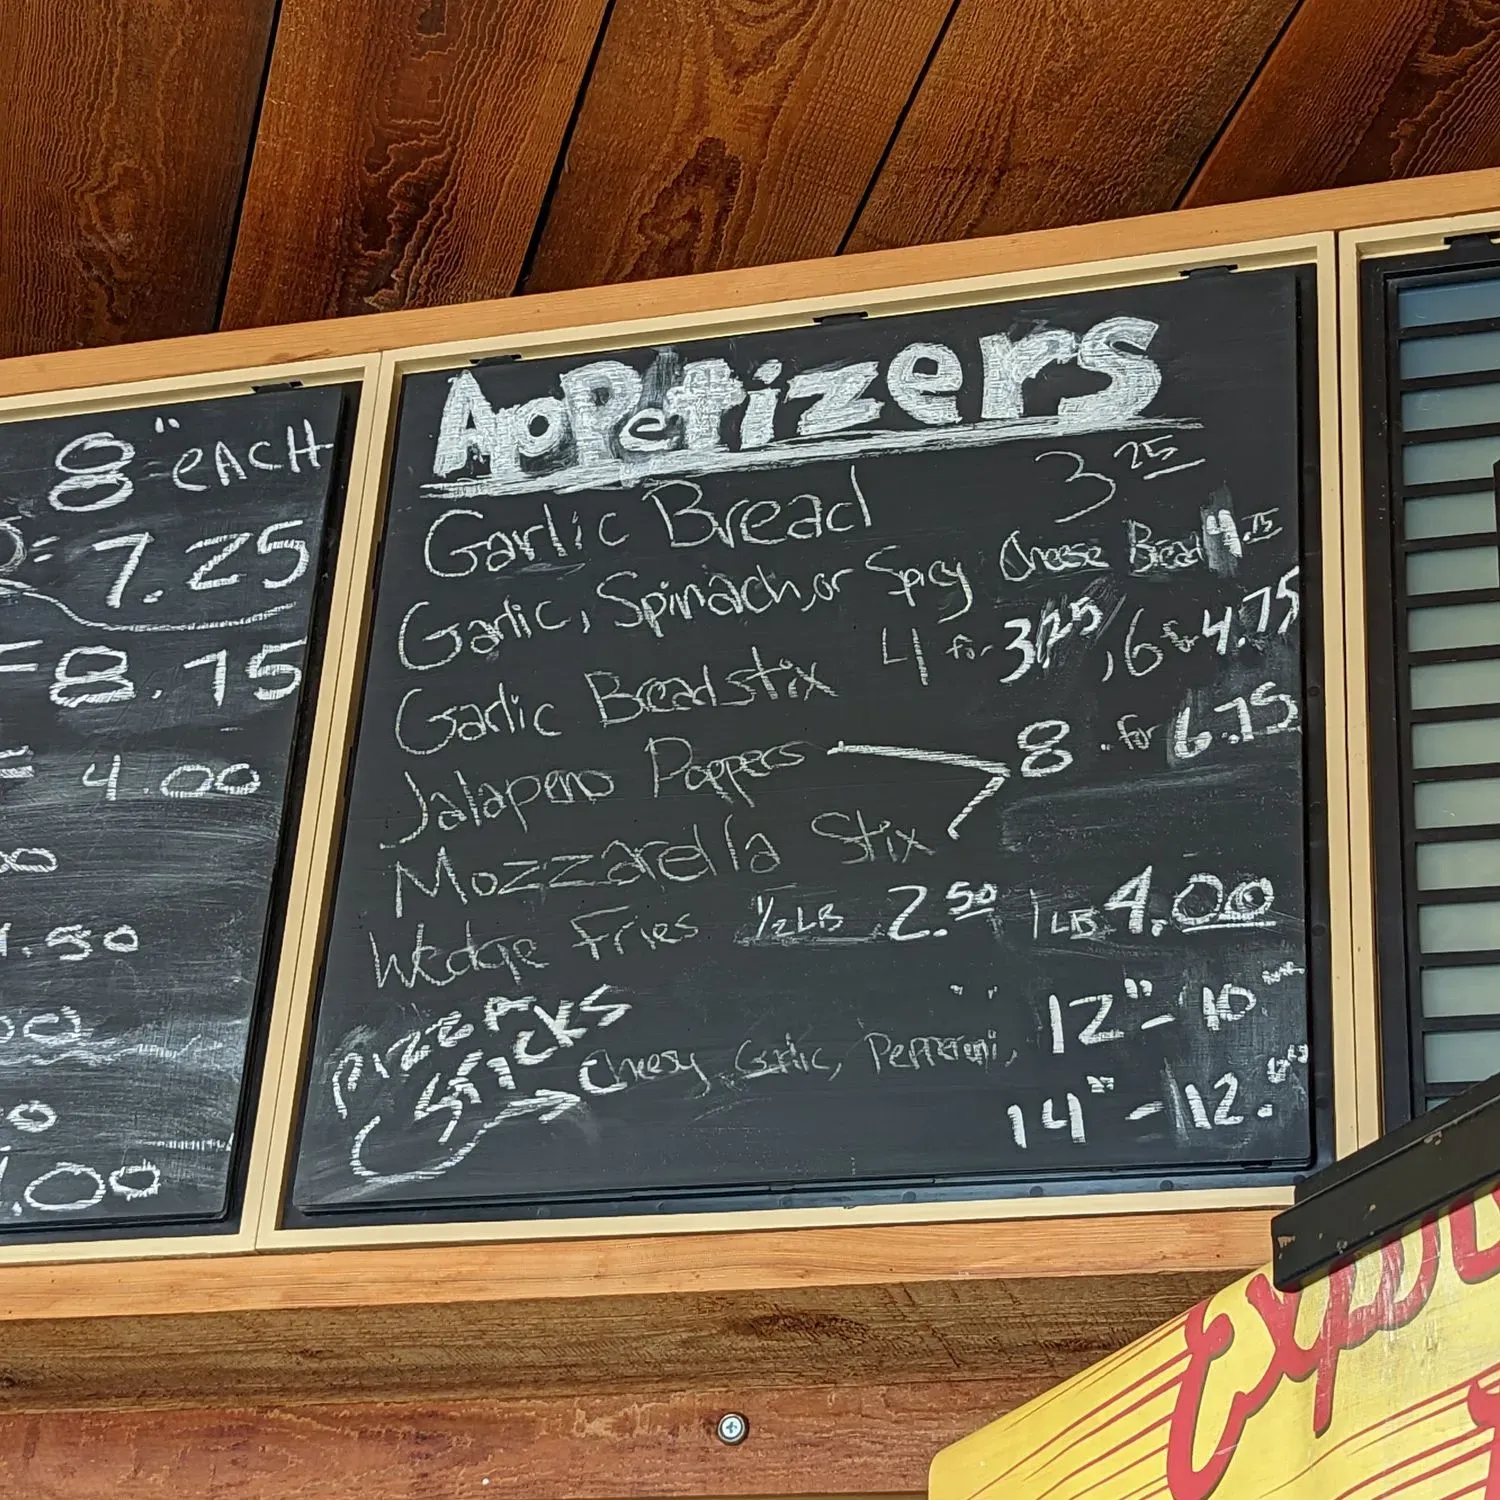 8" eACH
= 7.25
= 8.75
= 4.00
.50
.00
AppetizerS
Garlic Bread 3 25
Garlic, Spinach, or Spicy Cheese Bread
Garlic Breadstix 4 for 3.25, 6 for 4.75
Jalapeno Poppers 8 . for 6.75
Mozzarella Stix
Wedge Fries 1/2 LB 2.50 1 LB 4.00
PIZZA
STICKS
Cheesy Garlic, Pepperoni, 12" - 10
14" - 12.